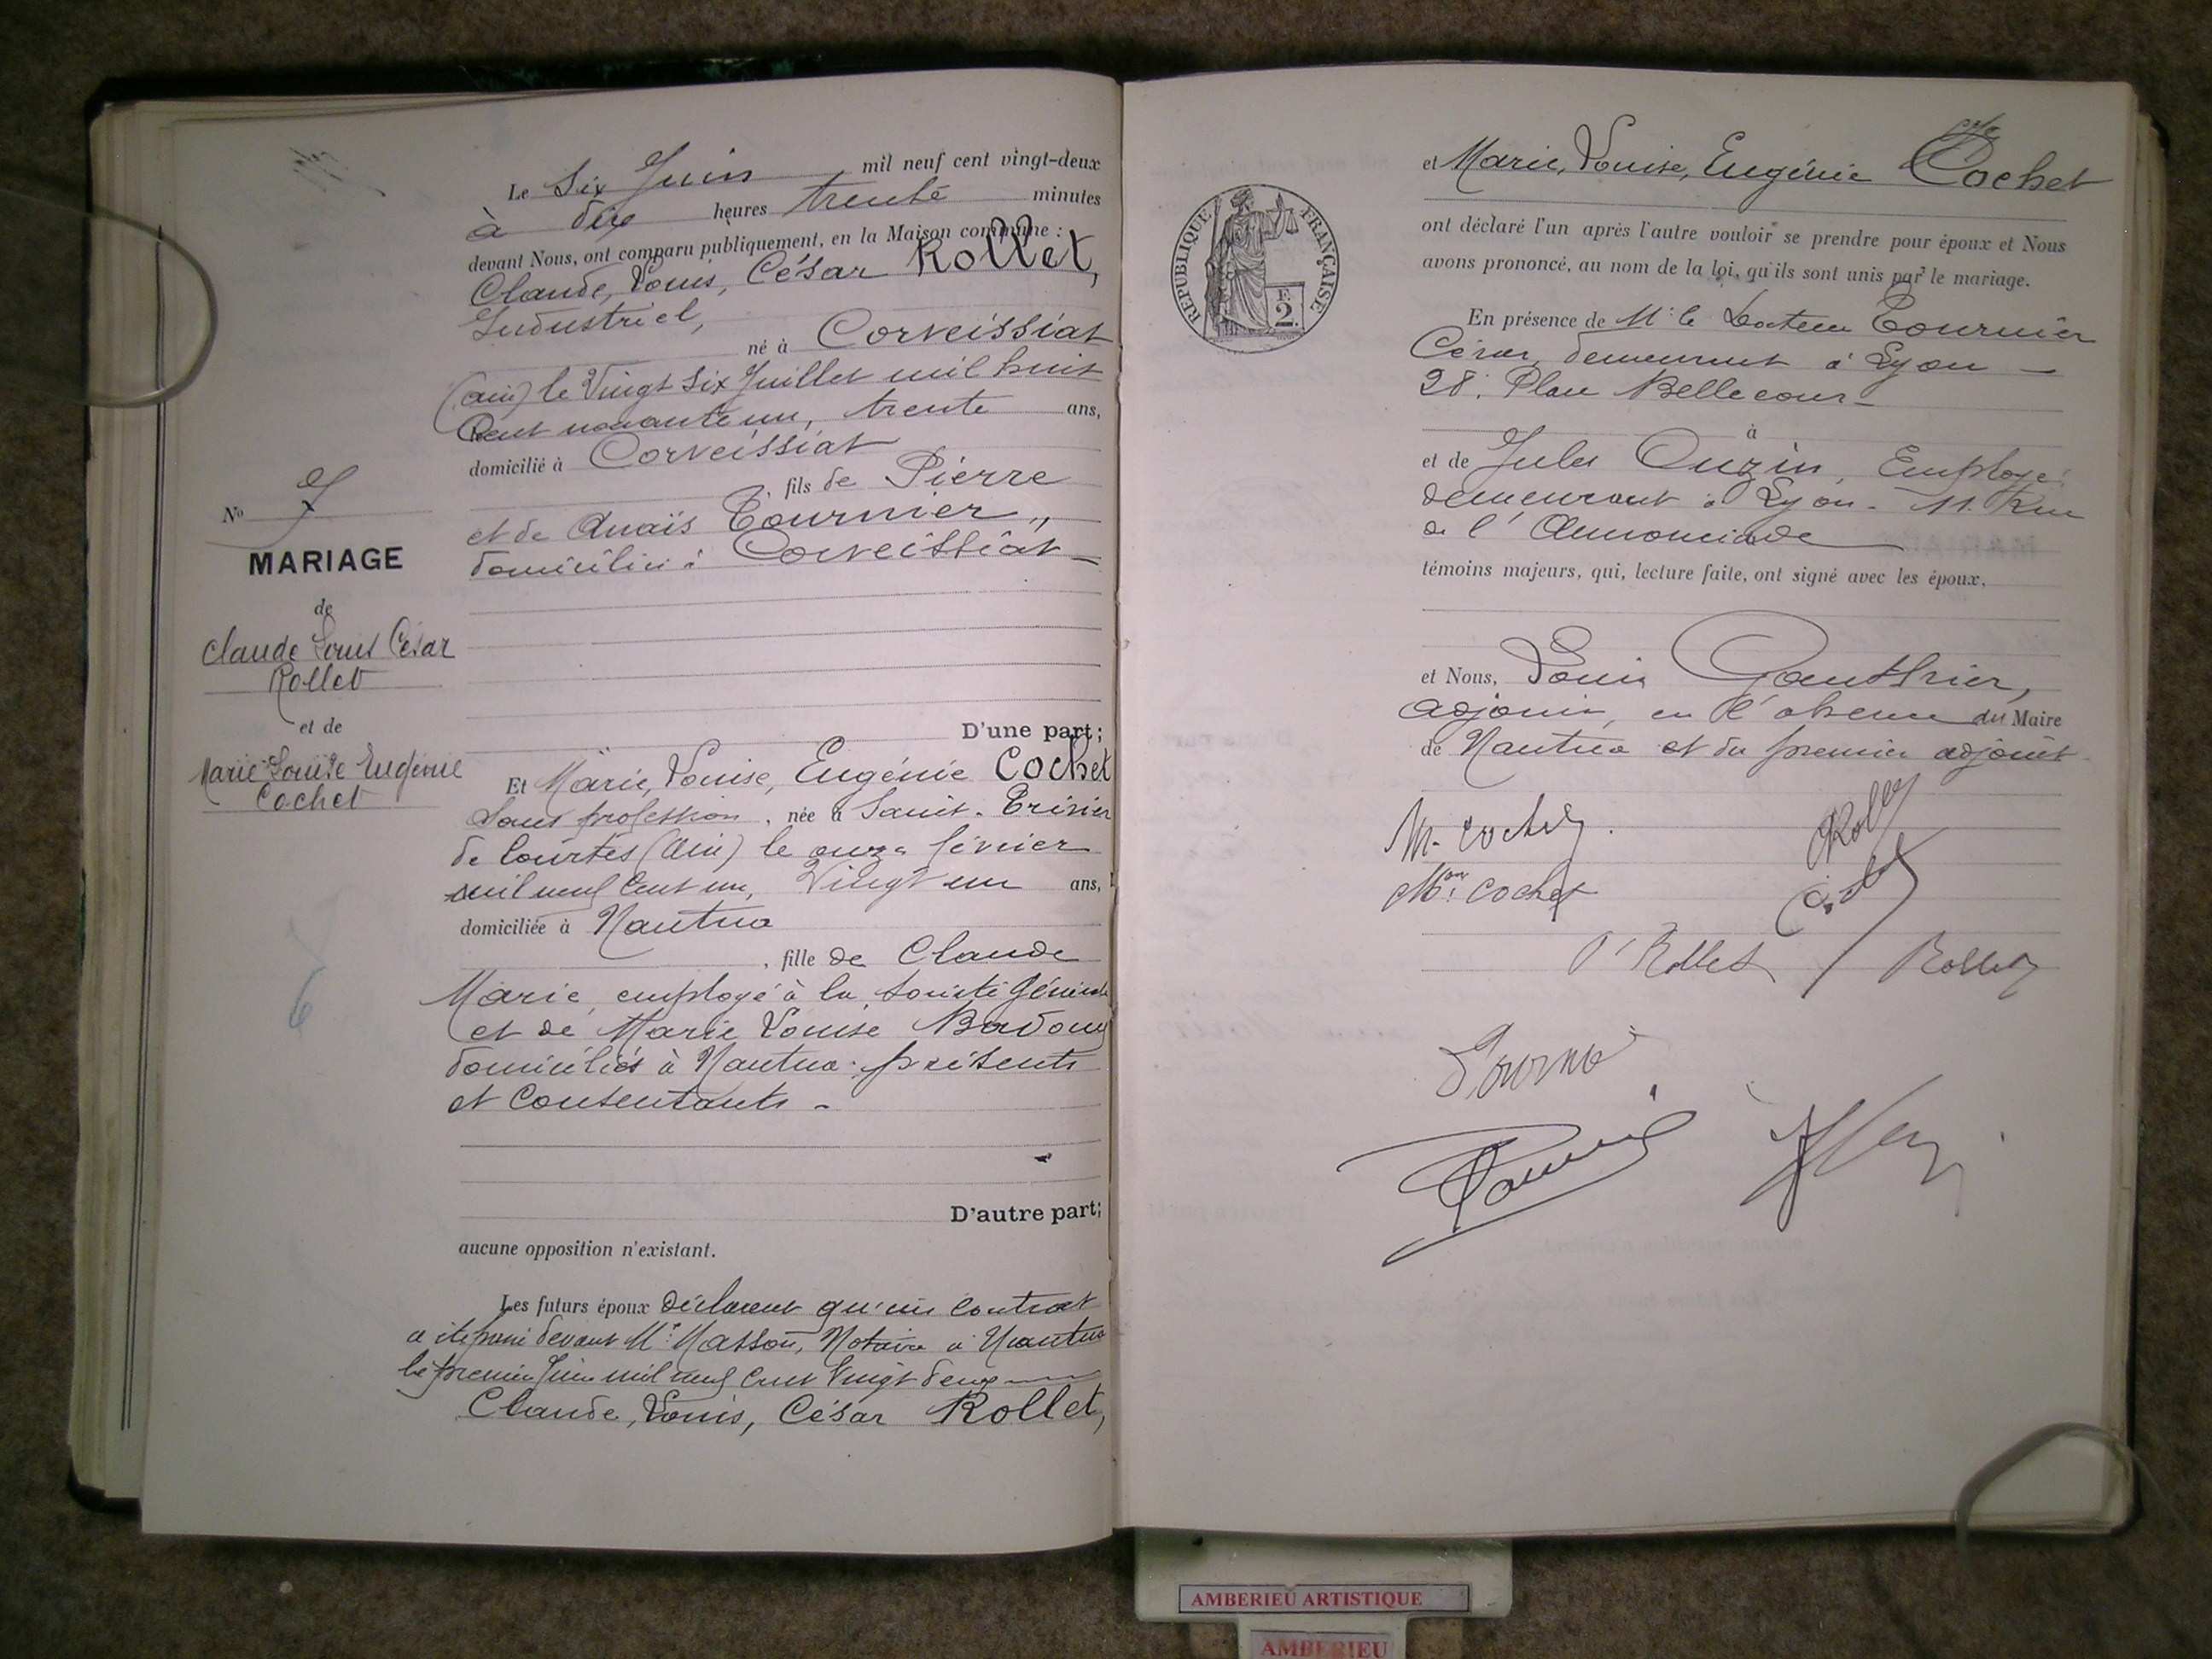 Le Six Juin mil neuf cent vingt-deux
à dix heures trente minutes
devant Nous, ont comparu publiquement, en la Maison commune :
Claude, Louis, César Rollet,
Industriel,
né à Corveissiat
(ain) le Vingt Six Juillet mil huit
Cent nonante un, trente ans,
domicilié à Corveissiat
, fils de Pierre
et de Anaïs Tournier,
domiciliés à Corveissiat
No 7
MARIAGE
de
Claude Louis César
Rollet
et de
Marie Louise Eugénie
Cochet
6
D'une part;
Et Marie, Louise, Eugénie Cochet
Sans profession, née à Saint-Trivier
de Courtes (Ain) le onze février
mil neuf Cent un, Vingt un ans,
domiciliée à Nantua
, fille de Claude
Marie, employé à la Société Générale
et de Marie Louise
domiciliés à Nantua. présents
et Consentants -
D'autre part;
aucune opposition n'existant.
Les futurs époux déclarent qu'un Contrat
a été passé devant Me Masson, Notaire à Nantua
le premier Juin mil neuf cent Vingt deux
Claude, Louis, César Rollet,
REPUBLIQUE FRANÇAISE
2
et Marie, Louise, Eugénie Cochet
ont déclaré l'un après l'autre vouloir se prendre pour époux et Nous
avons prononcé, au nom de la loi, qu'ils sont unis par le mariage.
En présence de Mr le Docteur Tournier
César, demeurant à Lyon -
28. Place Bellecour -
à
et de Jules Ouzin, Employé
demeurant à Lyon - 11. Rue
de l'Annonciade
témoins majeurs, qui, lecture faite, ont signé avec les époux,
et Nous, Louis Gauthier,
adjoint, en l'absence du Maire
de Nantua et du premier adjoint
M. Cochet
Rollet
Cochet
Rollet
Rollet
AMBERIEU ARTISTIQUE
AMBERIEU